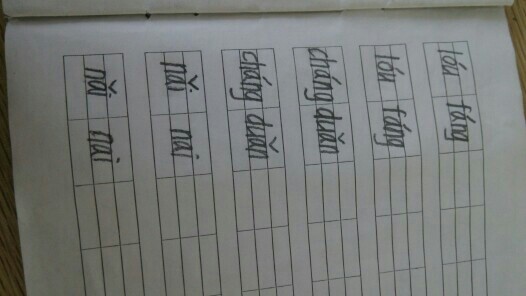 tóu fáng
tóu fáng
cháng duǎn
cháng duǎn
nǎi nai
nǎi nai